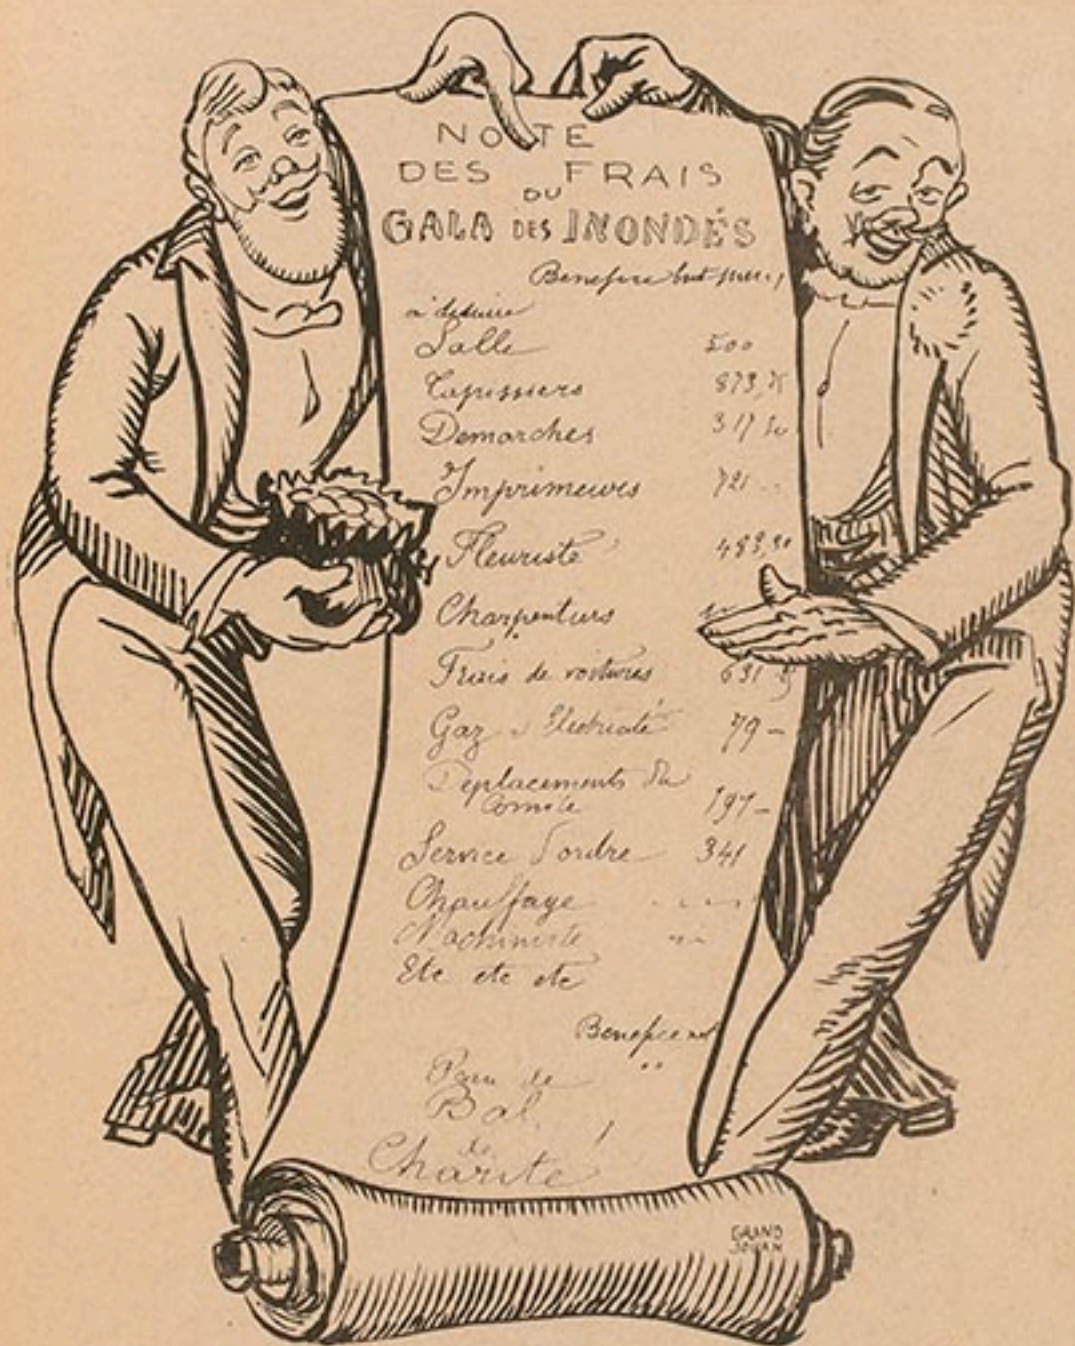 NOTE
DES FRAIS
DU
GALA DES INONDÉS
Benefice
à déduire
Salle 500
Tapissiers 873,
Demarches 317
Imprimeurs 721
Fleuriste 483,
Charpentiers
Frais de voitures 631
Gaz Electricité 79 –
Deplacements du
Comité 197 –
Service d'ordre 341
Chauffage
Machiniste
Etc etc etc
Benefice net
Bal
de
Charité !
GRAND
JOUAN